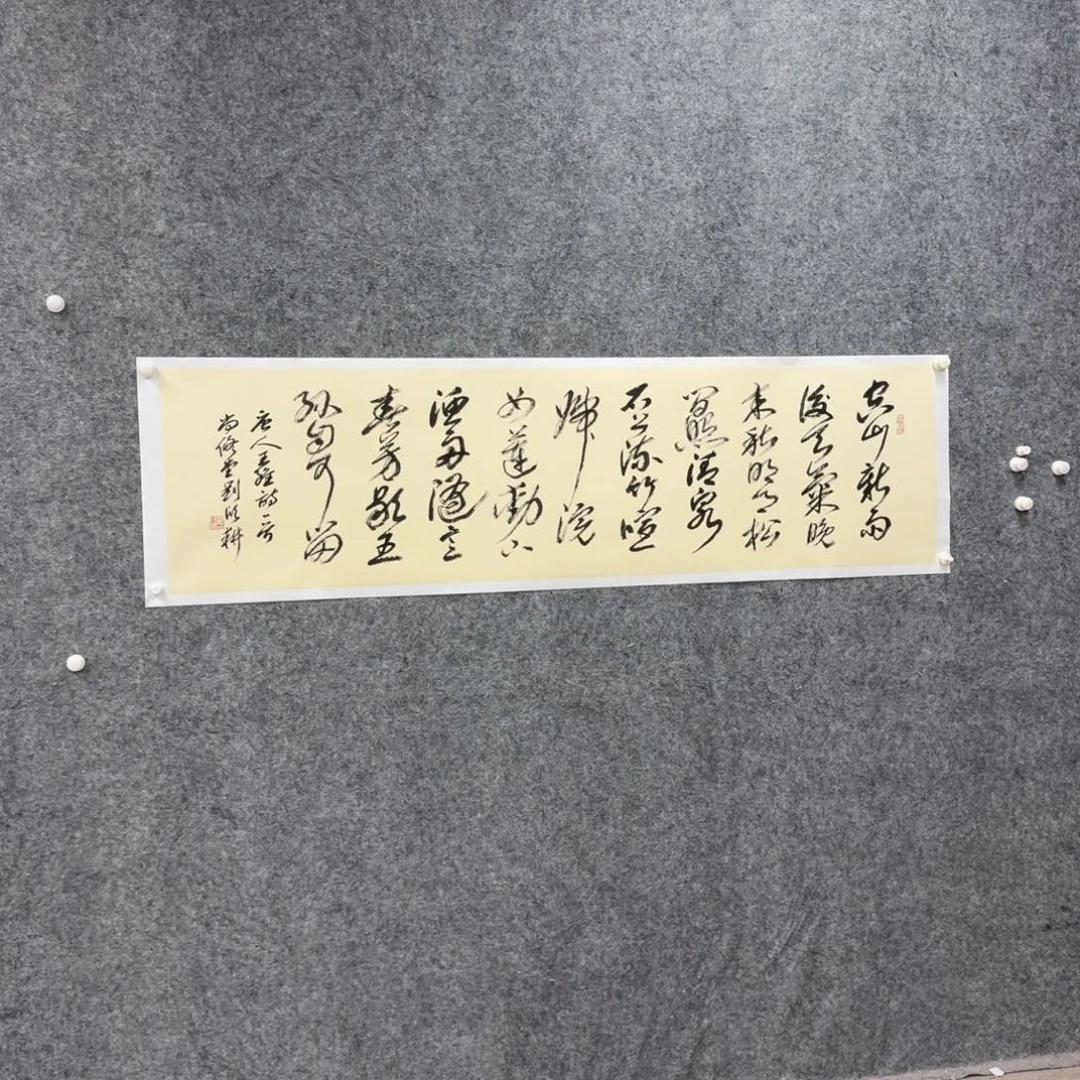 空山新雨
後天氣晚
来秋明月松
間照清泉
石上流竹喧
歸浣
女蓮動下
漁舟隨意
春芳歇王
孫自可留
唐人王維詩一首
尚修堂劉耕